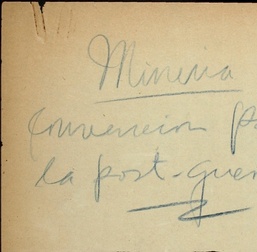 Minerva
Convencion p
la post-guer